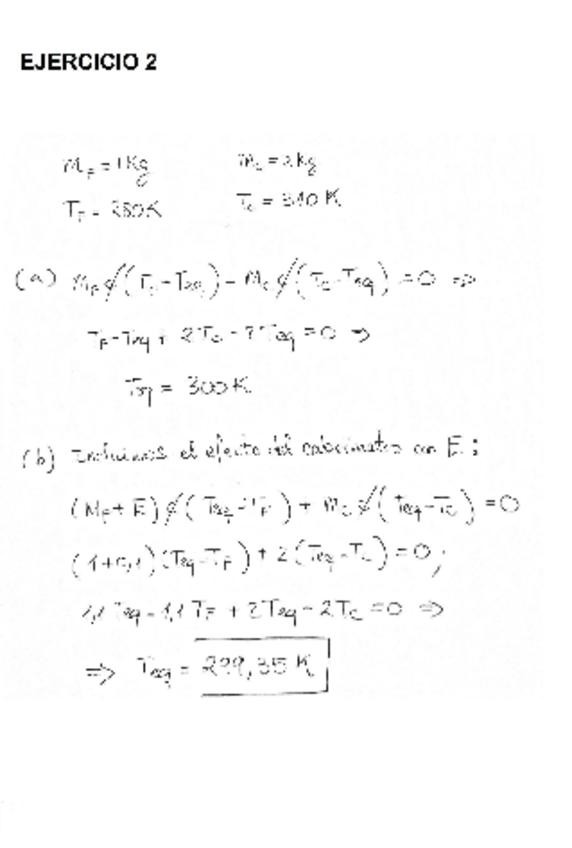 EJERCICIO 2
M_F = 1 Kg    m_c = 2 kg
T_F = 280 K    T_c = 310 K
(a) m_F c (T_F - Teq) - M_c c (T_c - Teq) = 0 =>
T_F - Teq + 2T_c - 2Teq = 0 =>
Teq = 300 K
(b) Incluimos el efecto del calorímetro con E:
(M_F + E) c (Teq - T_F) + m_c c (Teq - T_c) = 0
(1+0,1) (Teq - T_F) + 2 (Teq - T_c) = 0;
1,1 Teq - 1,1 T_F + 2Teq - 2T_c = 0 =>
=> Teq = 299,35 K